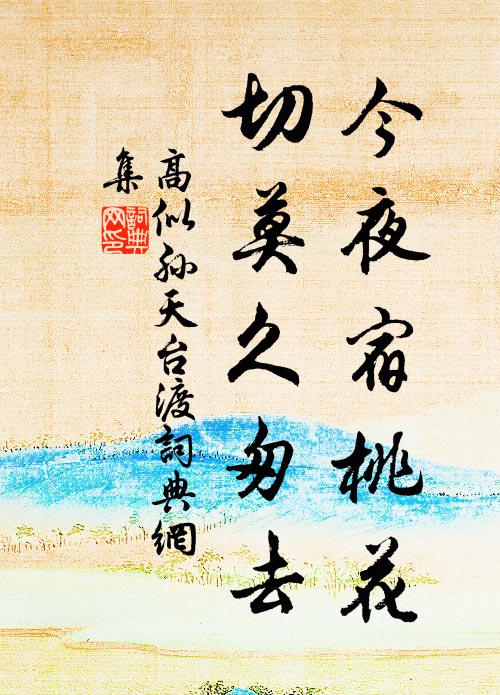 今夜宿桃花
切莫久匆去
高似孙天台渡詞典網
集
詞典網印